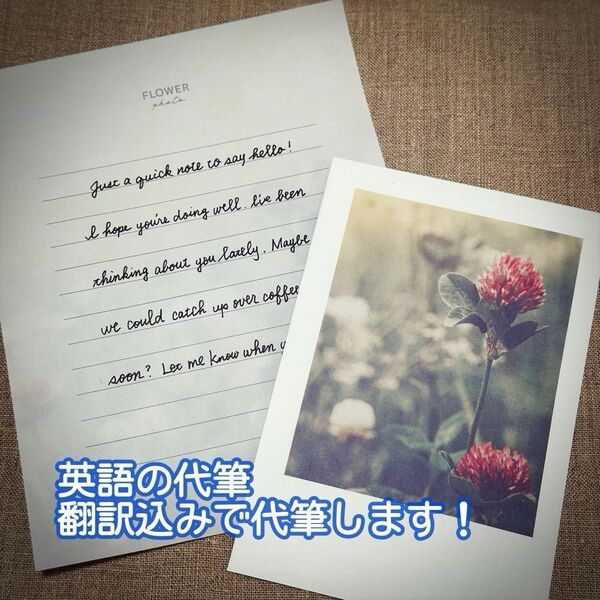 FLOWER
photo
Just a quick note to say hello!
I hope you're doing well. I've been
thinking about you lately. Maybe
we could catch up over coffee
soon? Let me know when
英語の代筆
翻訳込みで代筆します！